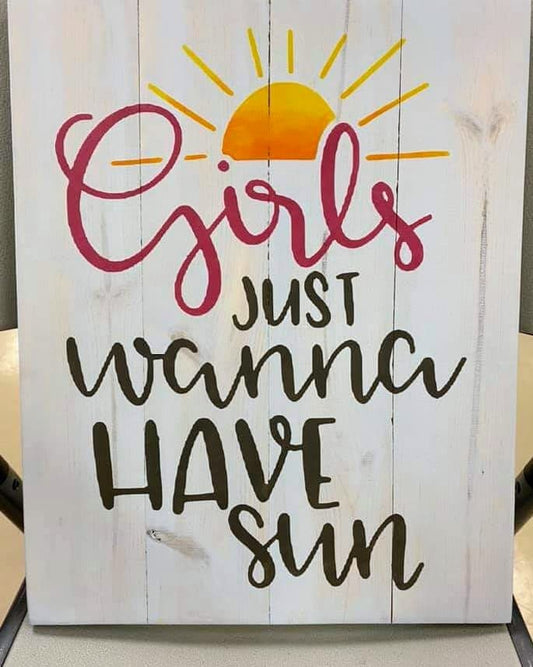 Girls
JUST
wanna
HAVE
sun